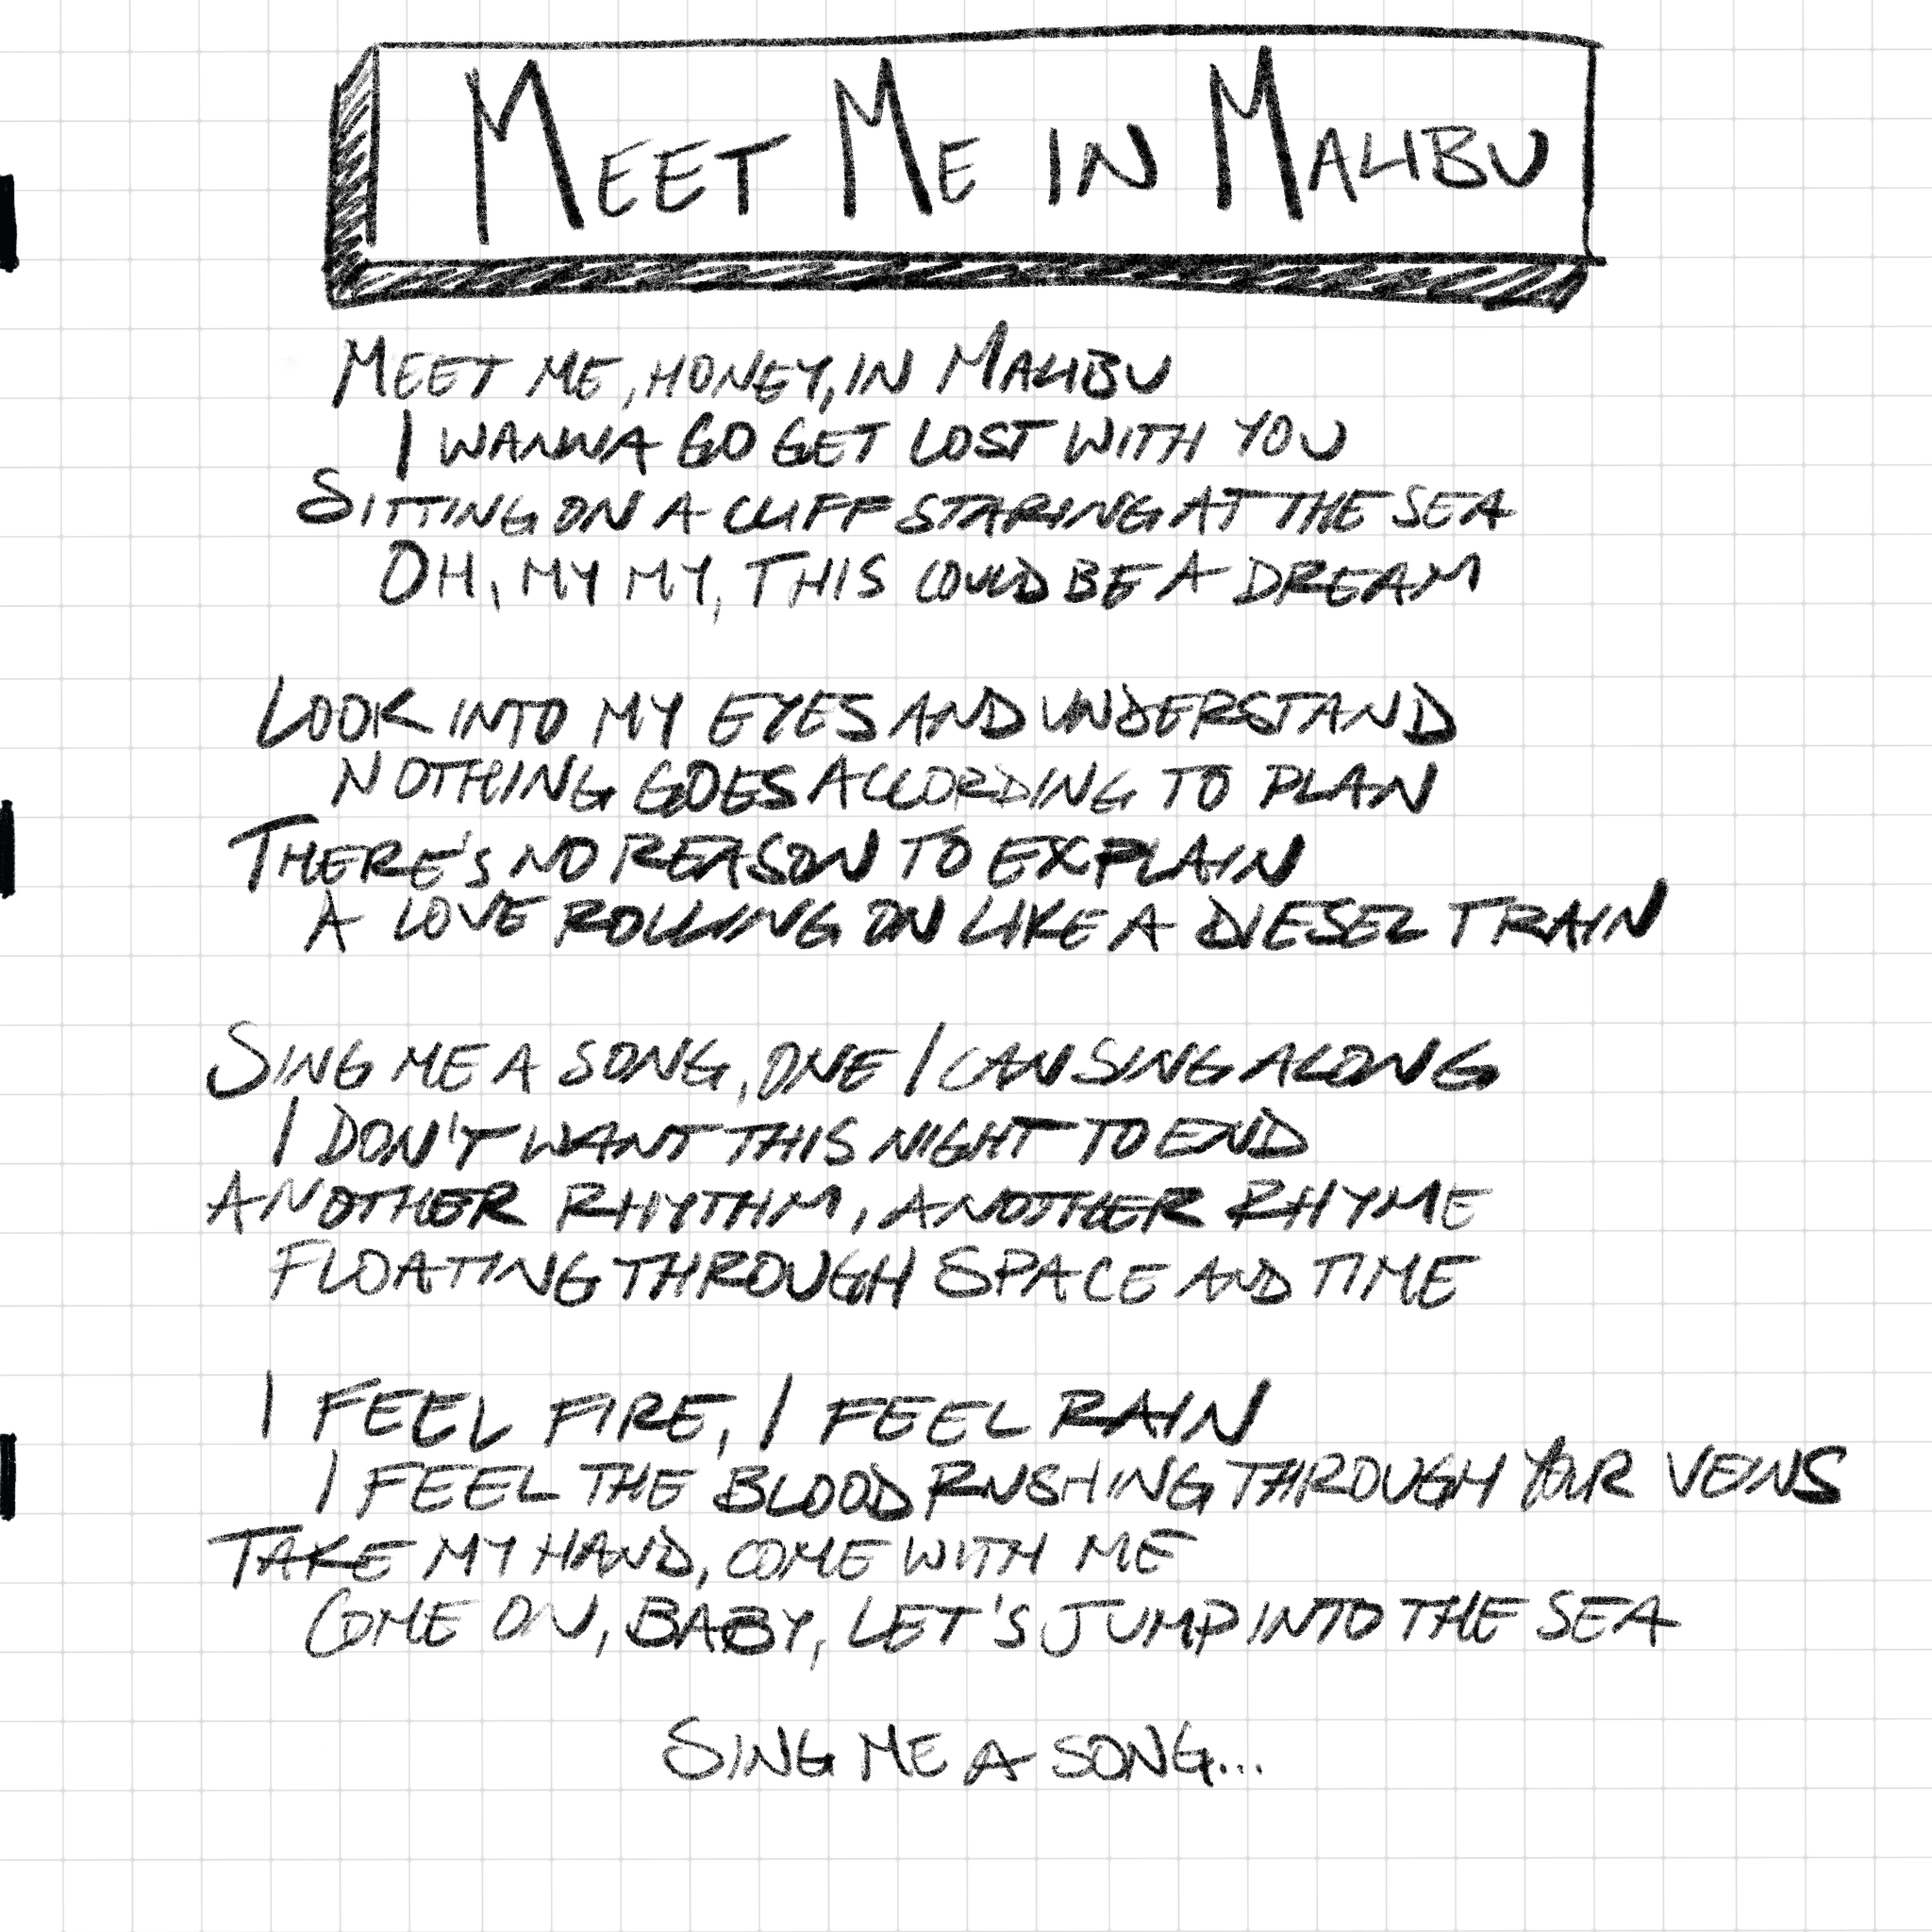 MEET ME IN MALIBU
MEET ME, HONEY, IN MALIBU
I WANNA GO GET LOST WITH YOU
SITTING ON A CLIFF STARING AT THE SEA
OH, MY MY, THIS COULD BE A DREAM
LOOK INTO MY EYES AND UNDERSTAND
NOTHING GOES ACCORDING TO PLAN
THERE'S NO REASON TO EXPLAIN
A LOVE ROLLING ON LIKE A DIESEL TRAIN
SING ME A SONG, ONE I CAN SING ALONG
I DON'T WANT THIS NIGHT TO END
ANOTHER RHYTHM, ANOTHER RHYME
FLOATING THROUGH SPACE AND TIME
I FEEL FIRE, I FEEL RAIN
I FEEL THE BLOOD RUSHING THROUGH YOUR VEINS
TAKE MY HAND, COME WITH ME
COME ON, BABY, LET'S JUMP INTO THE SEA
SING ME A SONG...